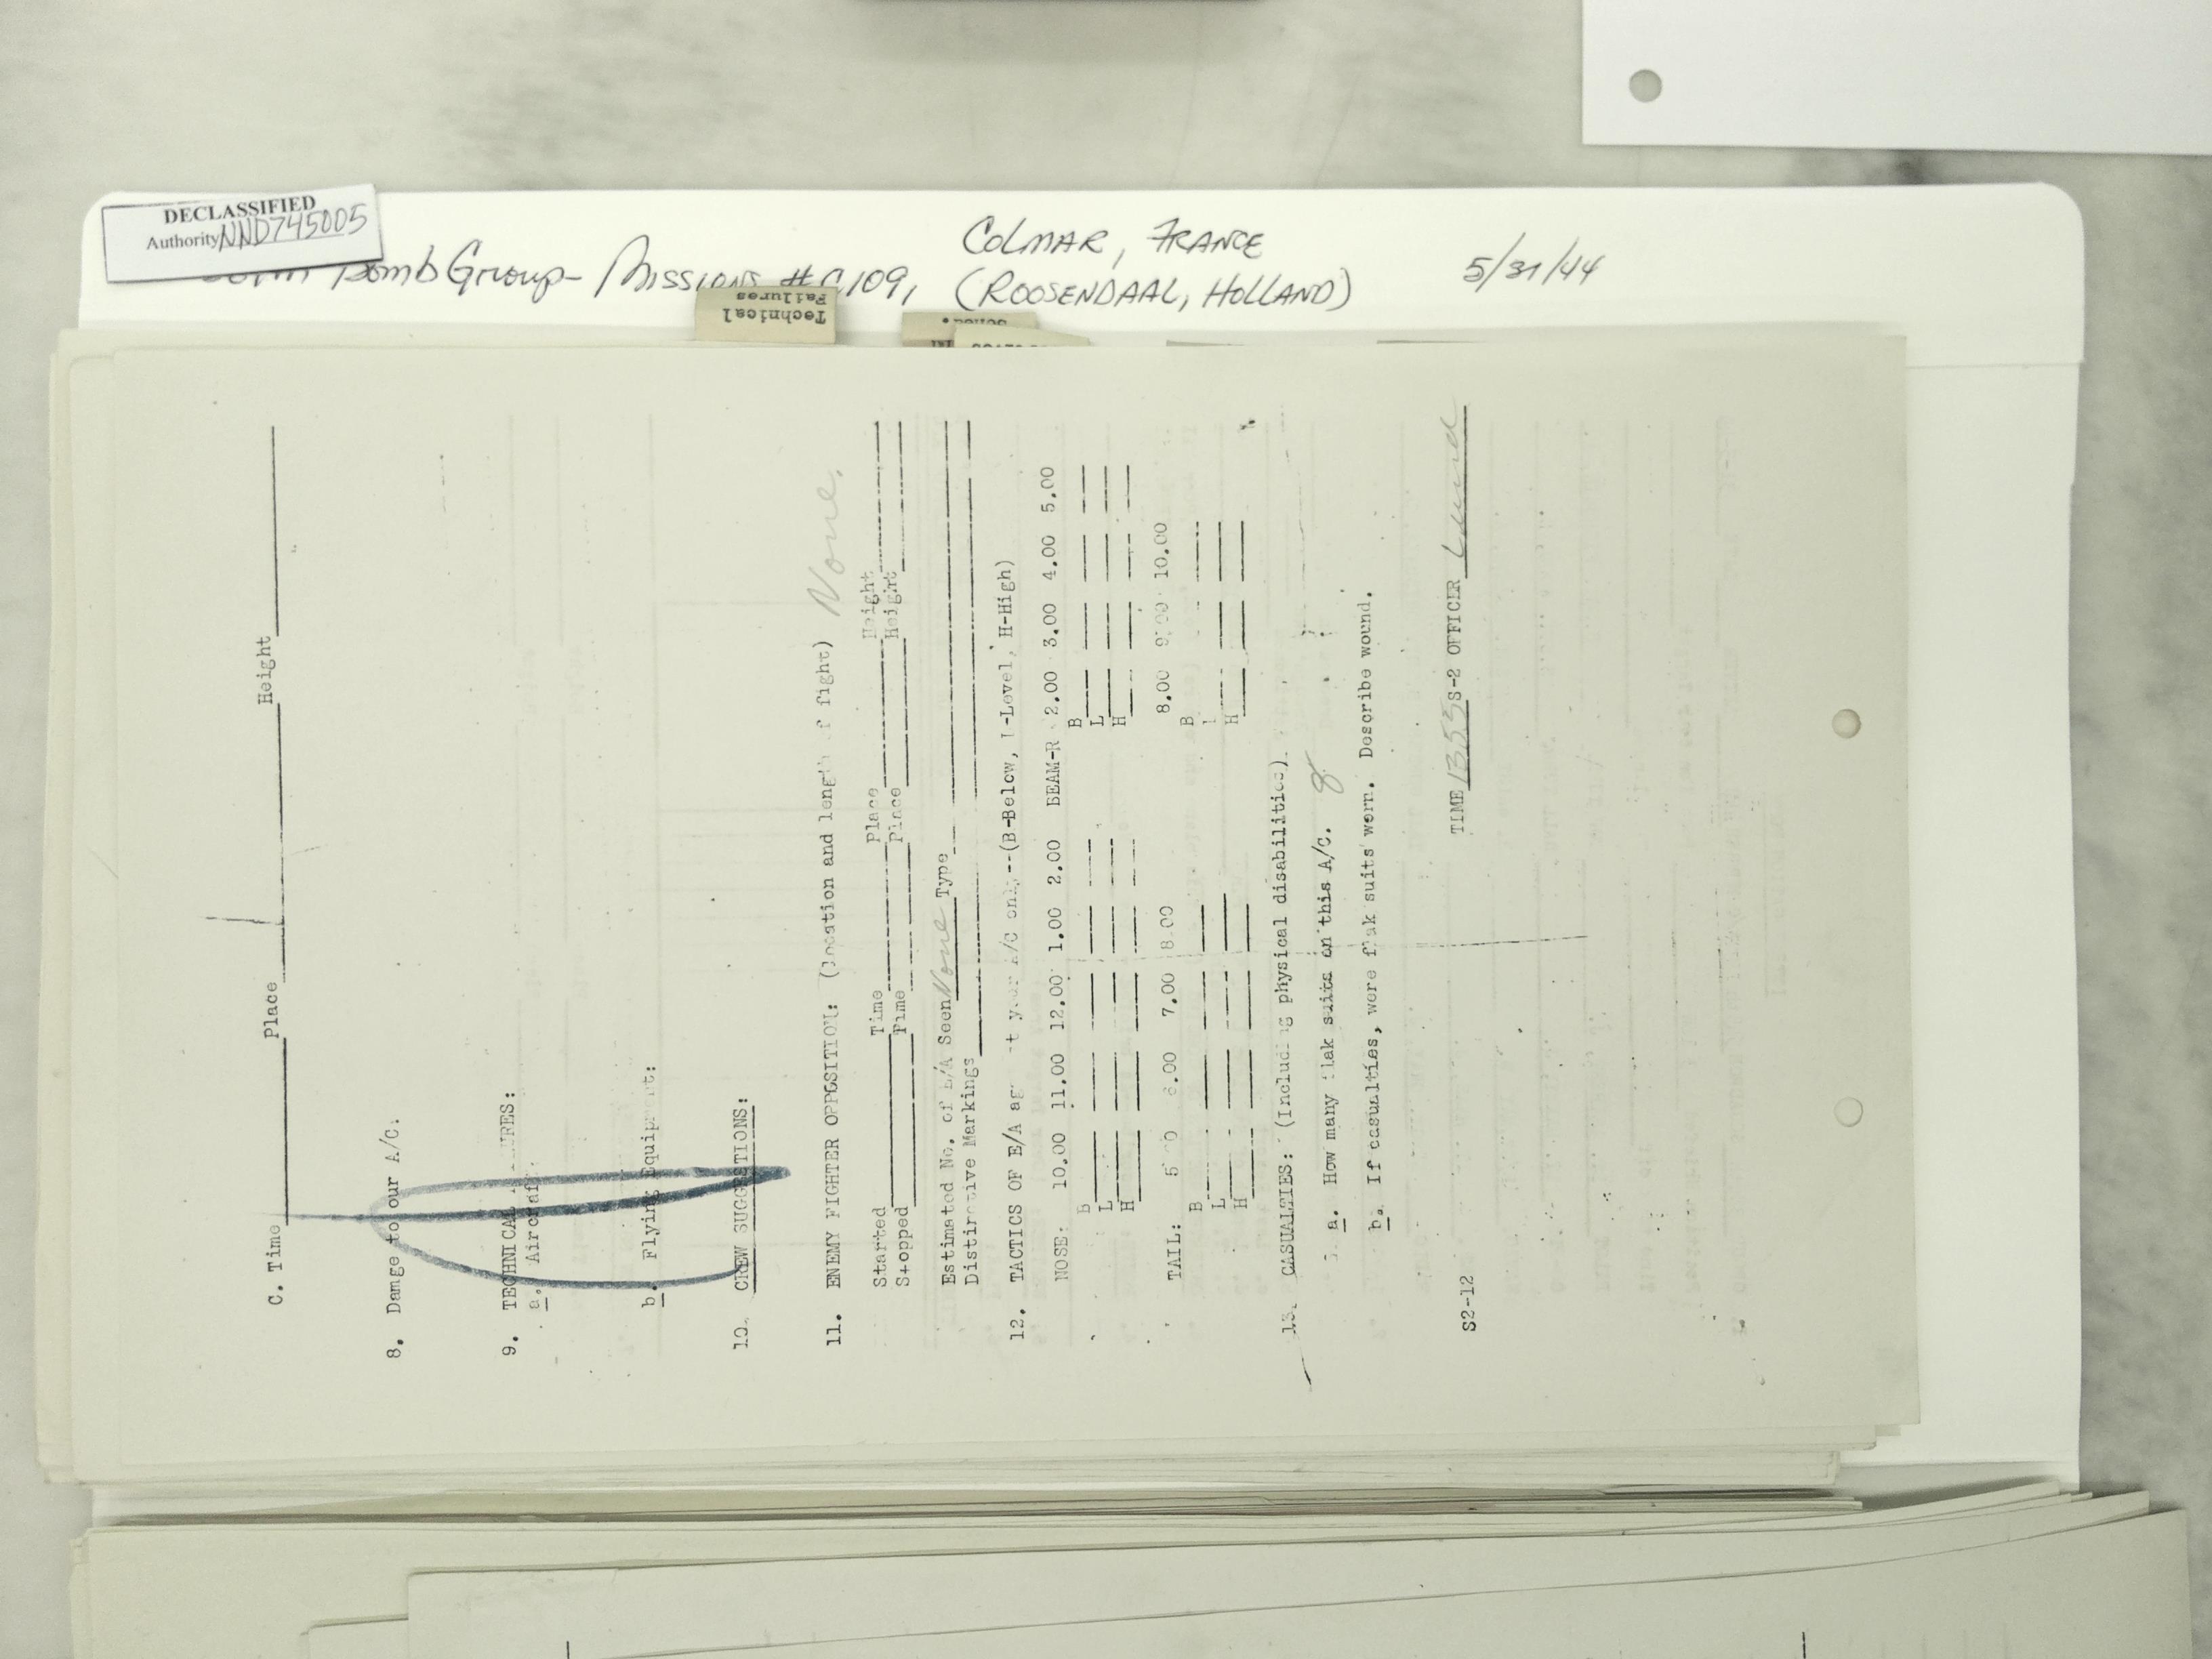 DECLASSIFIED
Authority NND745005
Bomb Group- Missions # 109, COLMAR, FRANCE
(ROOSENDAAL, HOLLAND) 5/31/44
Technical
Failures
C. Time Place Height
8. Damge to our A/C:
9. TECHNICAL
a. Aircraft
b. Flying
10. CREW SUGGESTIONS:
11. ENEMY FIGHTER OPPOSITION: (Location and length of fight) None.
Started Time Place Height
Stopped Time Place Height
Estimated No. of E/A Seen None Type
Distinctive Markings
12. TACTICS OF E/A your A/C only--(B-Below, L-Level, H-High)
NOSE: 10.00 11.00 12.00 1.00 2.00 BEAM-R 2.00 3.00 4.00 5.00
B B
L L
H H
TAIL: 5.00 6.00 7.00 8.00 8.00 9.00 10.00
B B
L L
H H
13. CASUALTIES: (Including physical disabilities).
a. How many flak suits on this A/C. 8
b. If casualties, were flak suits worn. Describe wound.
TIME 1355 S-2 OFFICER Lund
S2-12